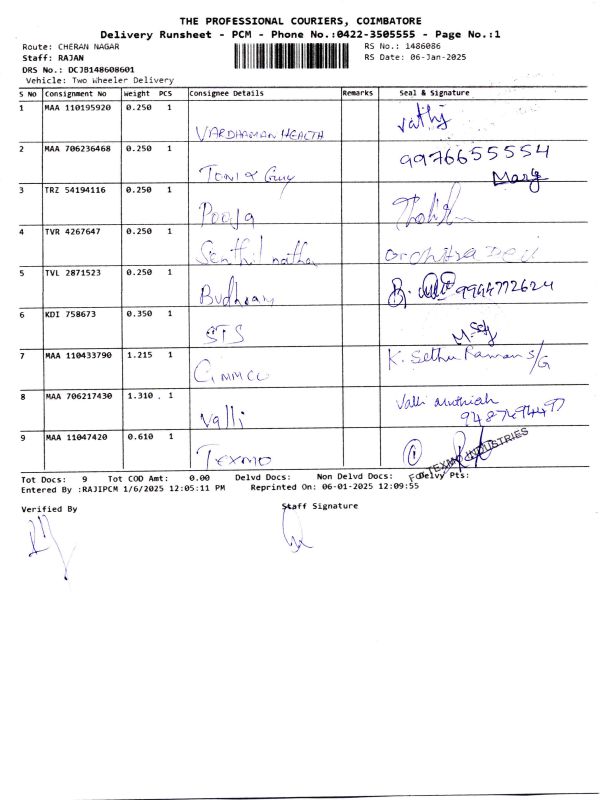 THE PROFESSIONAL COURIERS, COIMBATORE
Delivery Runsheet - PCM - Phone No.:0422-3505555 - Page No.:1
Route: CHERAN NAGAR RS No.: 1486086
Staff: RAJAN RS Date: 06-Jan-2025
DRS No.: DCJB148608601
Vehicle: Two Wheeler Delivery
S No Consignment No Weight PCS Consignee Details Remarks Seal & Signature
1 MAA 110195920 0.250 1 VARDHAMAN HEALTH
2 MAA 706236468 0.250 1 TONI & Guy 9976655554 Mary
3 TRZ 54194116 0.250 1 Pooja
4 TVR 4267647 0.250 1 Senthil nathan
5 TVL 2871523 0.250 1 Budhram 9944772624
6 KDI 758673 0.350 1 STS
7 MAA 110433790 1.215 1 GMMCO K. Sethu Raman S/G
8 MAA 706217430 1.310 . 1 Valli Valli
9 MAA 11047420 0.610 1 TEXMO 1 For TEXMO INDUSTRIES
Tot Docs: 9 Tot COD Amt: 0.00 Delvd Docs: Non Delvd Docs: Delvy Pts:
Entered By :RAJIPCM 1/6/2025 12:05:11 PM Reprinted On: 06-01-2025 12:09:55
Verified By Staff Signature